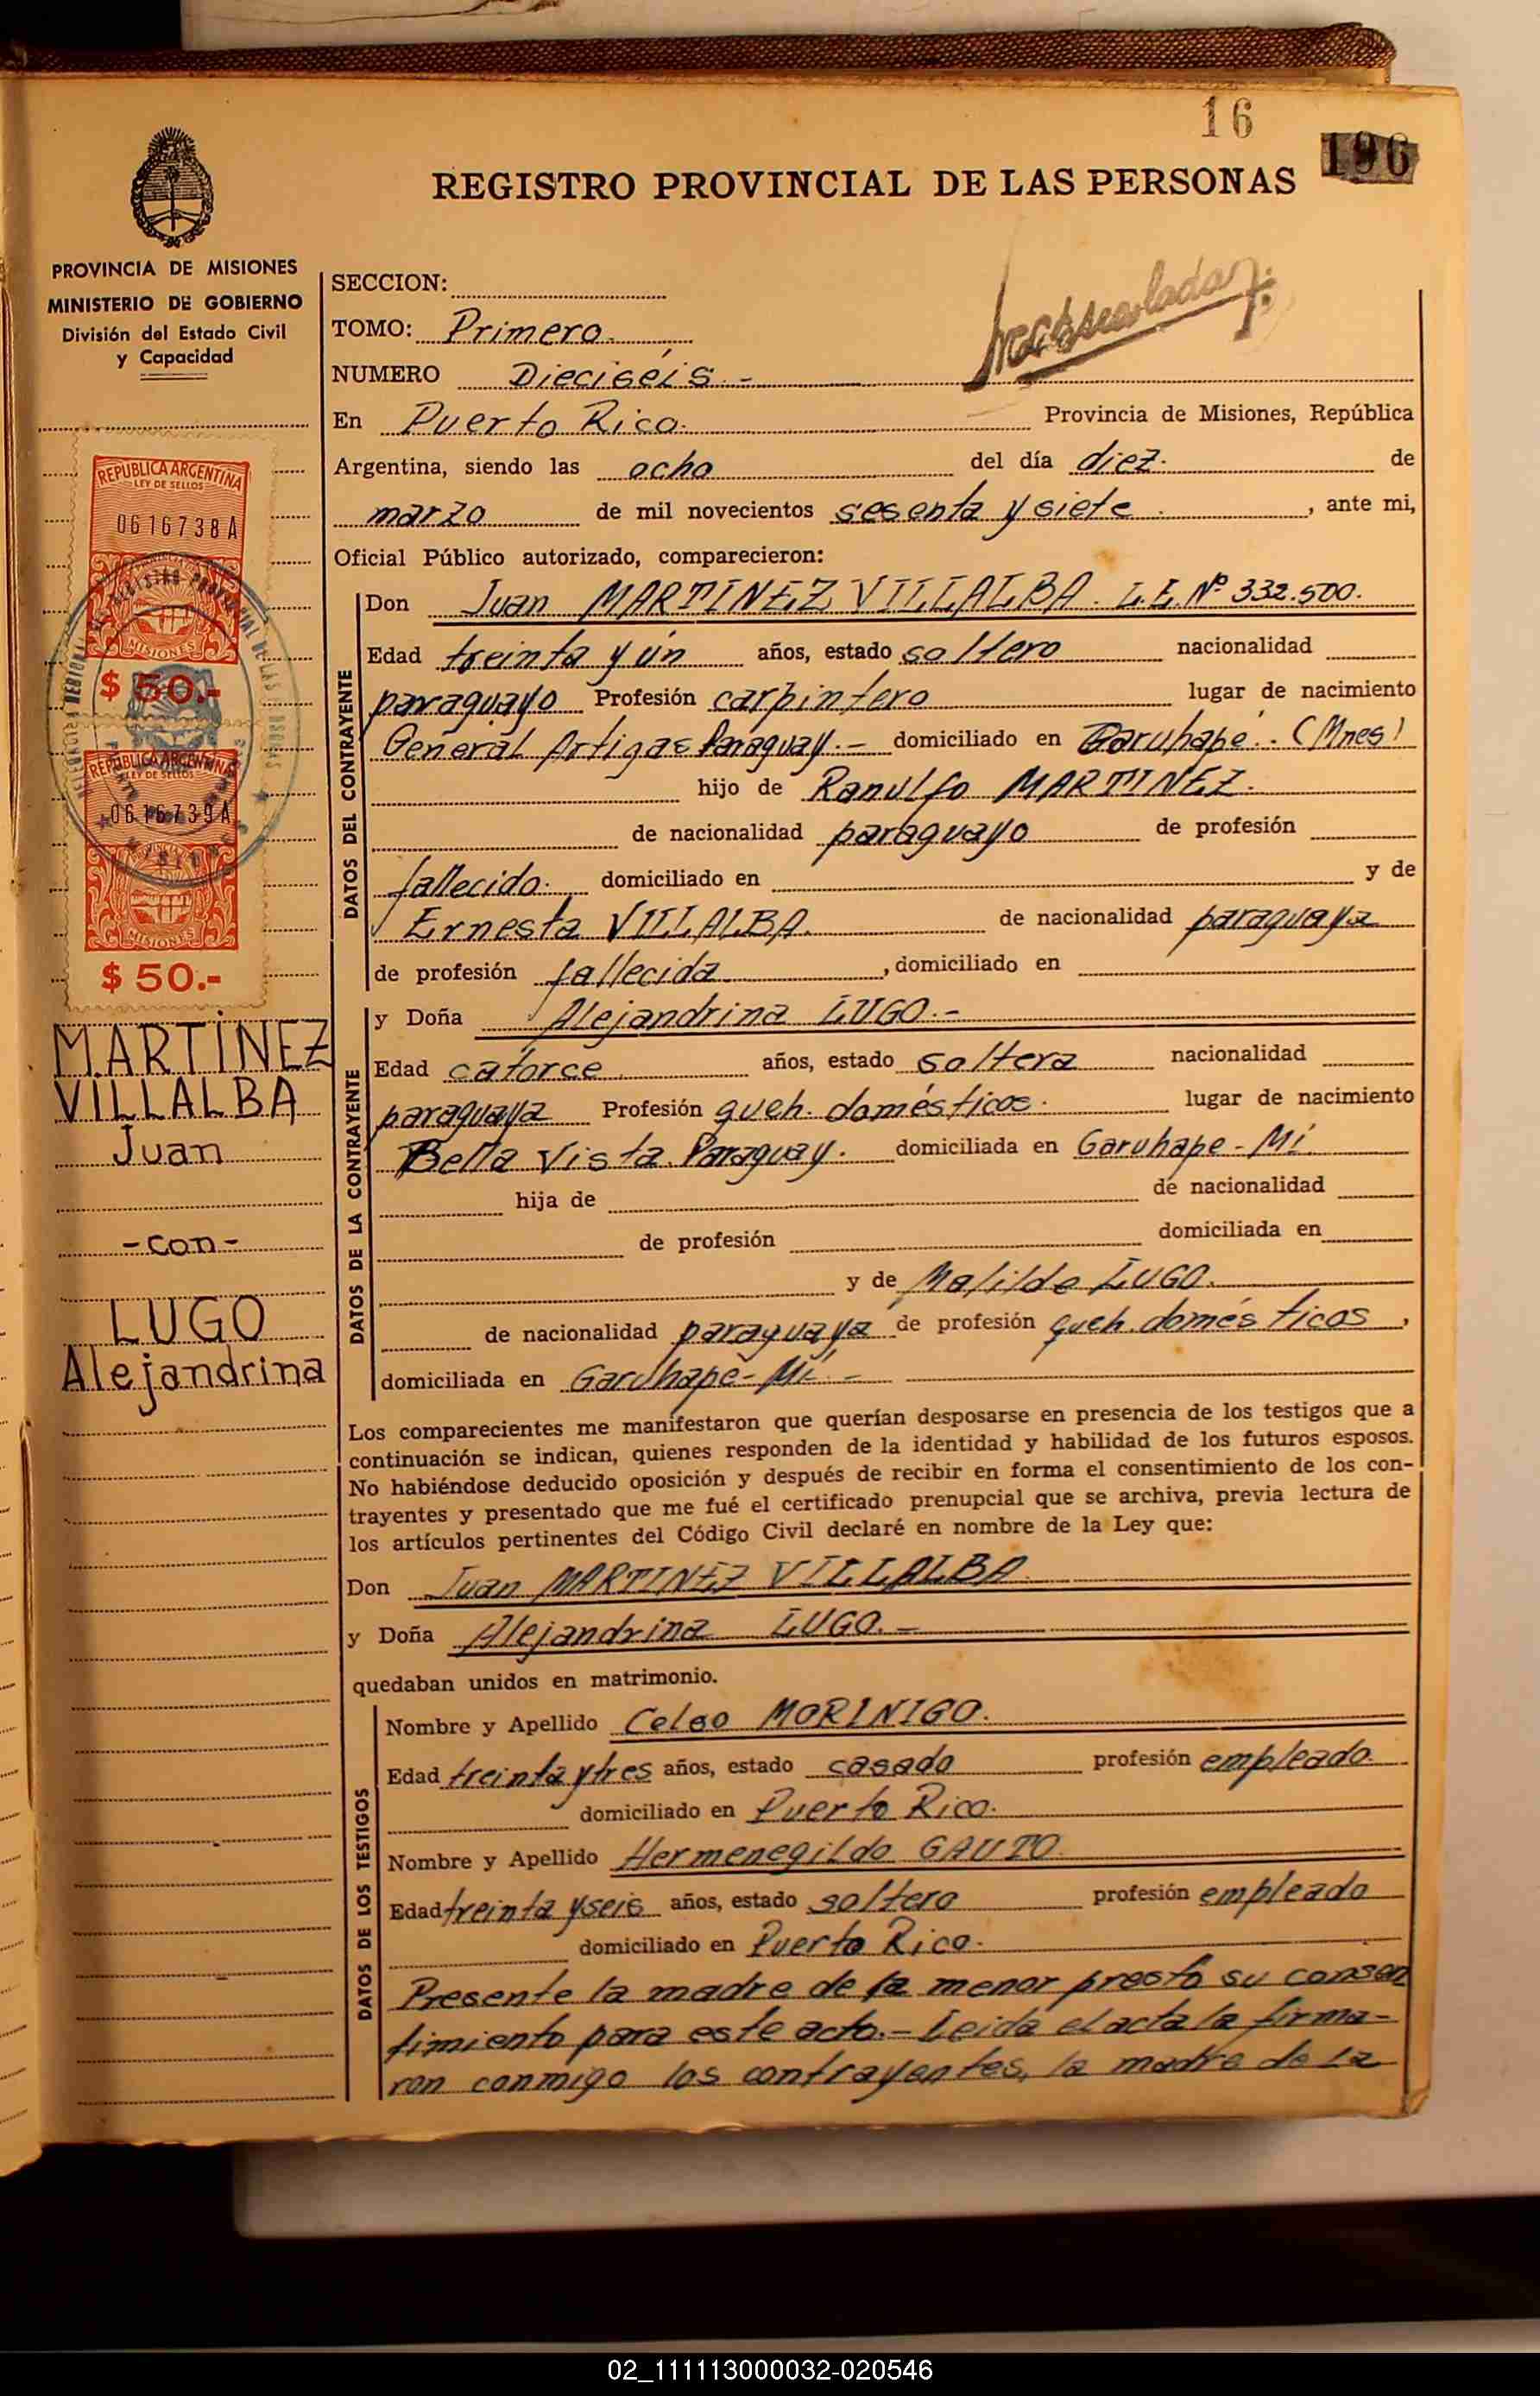 16
196
REGISTRO PROVINCIAL DE LAS PERSONAS
PROVINCIA DE MISIONES
MINISTERIO DE GOBIERNO
División del Estado Civil
y Capacidad
REPUBLICA ARGENTINA
LEY DE SELLOS
0616738A
MISIONES
$ 50.-
REPUBLICA ARGENTINA
LEY DE SELLOS
0616739A
MISIONES
$ 50.-
MARTINEZ
VILLALBA
Juan
-con-
LUGO
Alejandrina
SECCION:
TOMO: Primero.
NUMERO Dieciséis. -
En Puerto Rico. Provincia de Misiones, República
Argentina, siendo las ocho del día diez. de
marzo de mil novecientos sesenta y siete. , ante mi,
Oficial Público autorizado, comparecieron:
DATOS DEL CONTRAYENTE
Don Juan MARTINEZ VILLALBA. L.E. Nº 332.500.
Edad treinta y ún años, estado soltero nacionalidad
paraguayo Profesión carpintero lugar de nacimiento
General Artigas Paraguay. - domiciliado en Garuhapé. (Mnes)
hijo de Ranulfo MARTINEZ.
de nacionalidad paraguayo de profesión
fallecido. domiciliado en y de
Ernesta VILLALBA. de nacionalidad paraguaya
de profesión fallecida , domiciliado en
DATOS DE LA CONTRAYENTE
y Doña Alejandrina LUGO. -
Edad catorce años, estado soltera nacionalidad
paraguaya Profesión queh. domésticos. lugar de nacimiento
Bella Vista. Paraguay. domiciliada en Garuhape - Mi.
hija de de nacionalidad
de profesión domiciliada en
y de Matilde LUGO.
de nacionalidad paraguaya de profesión queh. domésticos ,
domiciliada en Garuhapé - Mi. -
Los comparecientes me manifestaron que querían desposarse en presencia de los testigos que a
continuación se indican, quienes responden de la identidad y habilidad de los futuros esposos.
No habiéndose deducido oposición y después de recibir en forma el consentimiento de los con-
trayentes y presentado que me fué el certificado prenupcial que se archiva, previa lectura de
los artículos pertinentes del Código Civil declaré en nombre de la Ley que:
Don Juan MARTINEZ VILLALBA
y Doña Alejandrina LUGO. -
quedaban unidos en matrimonio.
DATOS DE LOS TESTIGOS
Nombre y Apellido Celso MORINIGO.
Edad treinta y tres años, estado casado profesión empleado.
domiciliado en Puerto Rico.
Nombre y Apellido Hermenegildo GAUTO.
Edad treinta y seis años, estado soltero profesión empleado
domiciliado en Puerto Rico.
Presente la madre de la menor presto su consen
timiento para este acto. - Leida el acta la firma-
ron conmigo los contrayentes, la madre de la
02_111113000032-020546